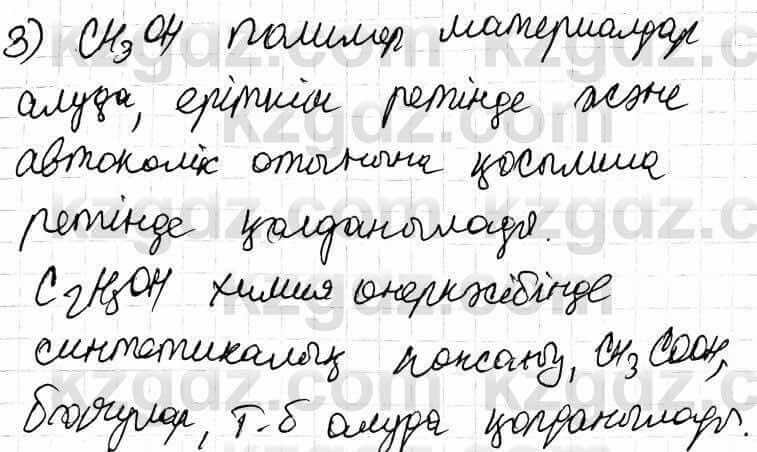 3) CH₃OH полимер материалдар
алуда, еріткіш ретінде және
автокөлік отынына қосылша
ретінде қолданылады.
C₂H₅OH химия өнеркәсібінде
синтетикалық каучук, CH₃COOH,
бояулар, т.б алуда қолданылады.
kzgdz.com